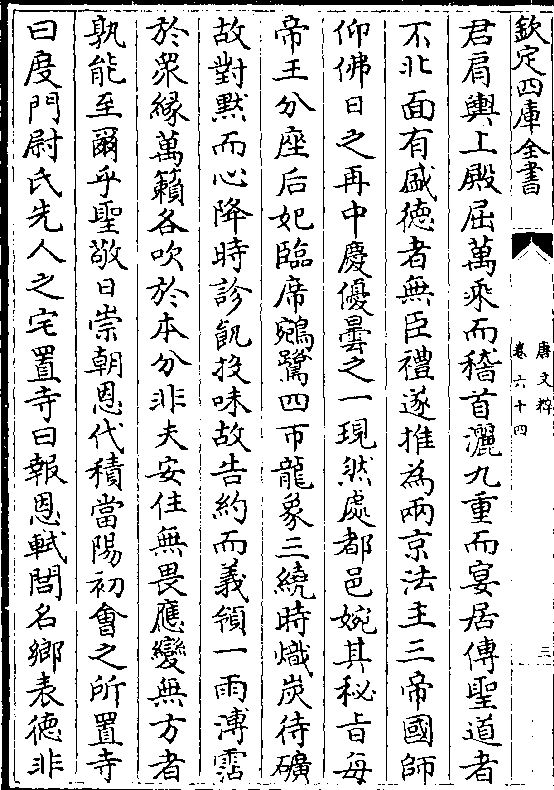 欽定四庫全書
唐文粹
卷六十四
三
君肩輿上殿屈萬乘而稽首灑九重而宴居傳聖道者
不北面有盛德者無臣禮遂推為兩京法主三帝國師
仰佛日之再中慶優曇之一現然處都邑婉其秘旨每
帝王分座后妃臨席鵷鷺四帀龍象三繞時熾炭待礦
故對黙而心降時診飢投味故告約而義領一雨溥霑
於衆縁萬籟各吹於本分非夫安住無畏應變無方者
孰能至爾乎聖敬日崇朝恩代積當陽初會之所置寺
曰度門尉氏先人之宅置寺曰報恩軾閭名鄉表德非